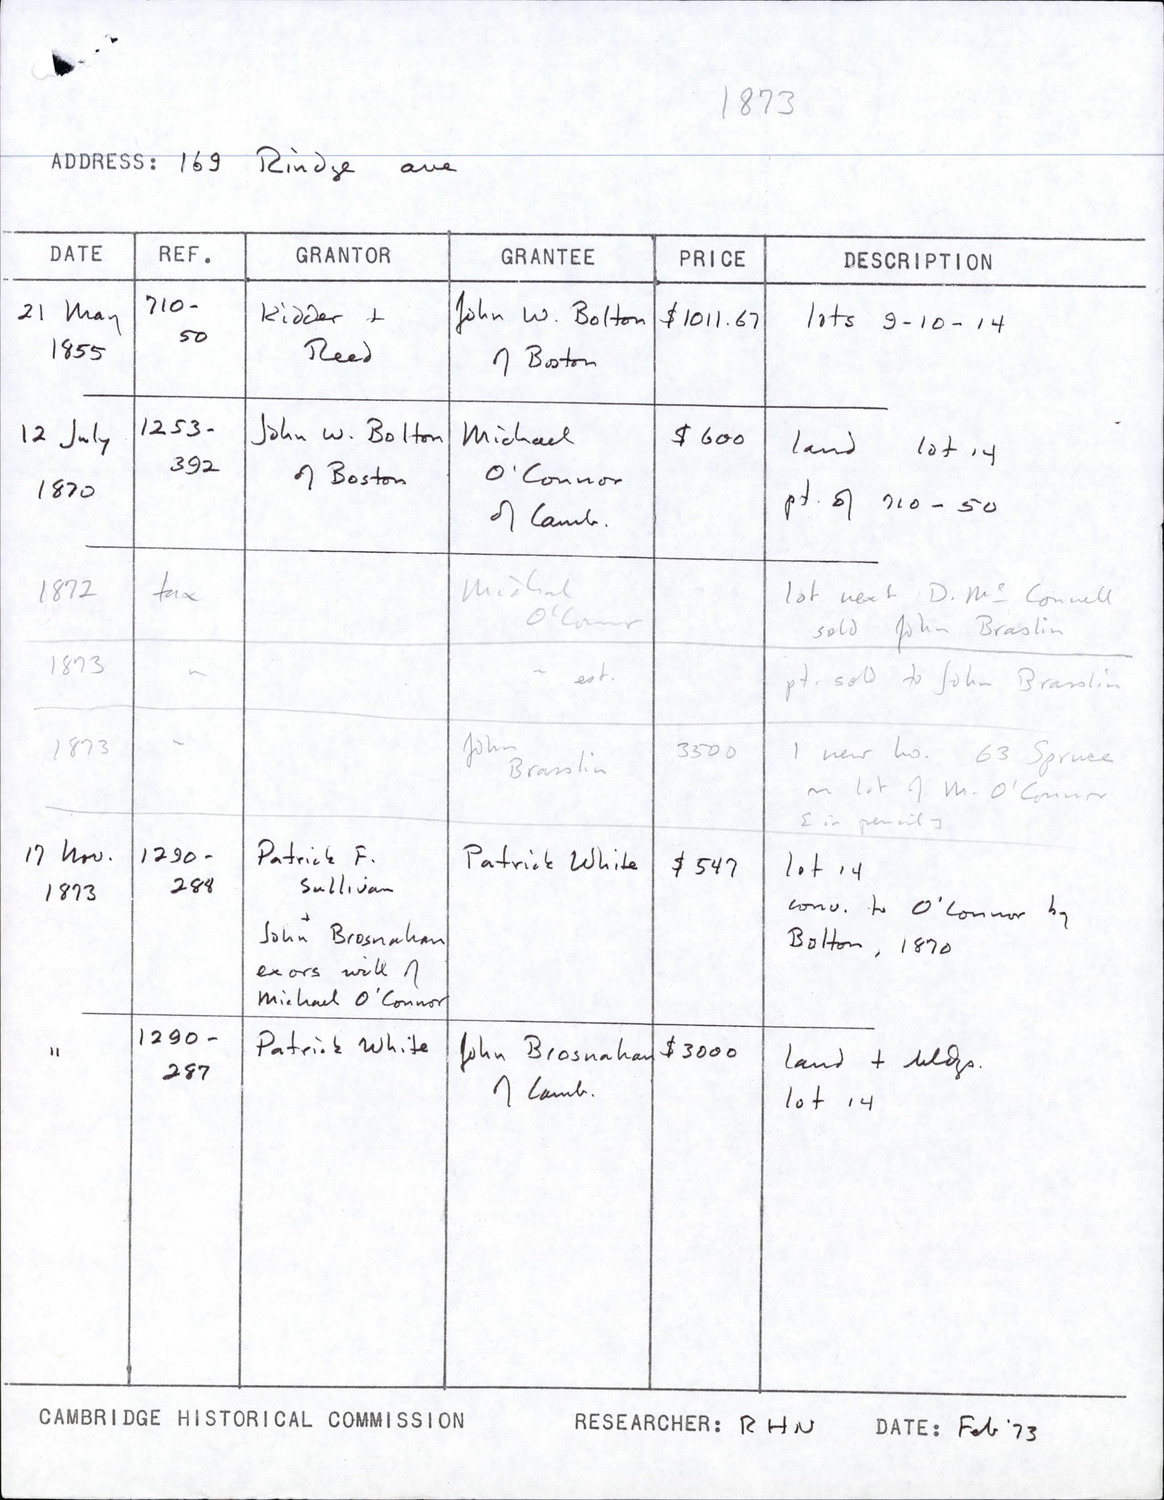 1873
ADDRESS: 169 Rindge ave
DATE REF. GRANTOR GRANTEE PRICE DESCRIPTION
21 May 710- Kidder + John W. Bolton $1011.67 lots 9-10-14
1855 50 Reed of Boston
12 July 1253- John W. Bolton Michael $600 land lot 14
1870 392 of Boston O'Connor pt. of 710-50
of Camb.
1872 tax Michael lot next D. Mc Connell
O'Connor sold John Braslin
1873 " " est. pt. sold to John Brasslin
1873 " John 3500 1 new ho. 63 Spruce
Brasslin on lot of M. O'Connor
[in pencil]
17 Nov. 1290- Patrick F. Patrick White $547 lot 14
1873 284 Sullivan conv. to O'Connor by
+
John Brosnahan Bolton, 1870
exors will of
Michael O'Connor
" 1290- Patrick White John Brosnahan $3000 land + bldgs.
287 of Camb. lot 14
CAMBRIDGE HISTORICAL COMMISSION RESEARCHER: RHN DATE: Feb '73